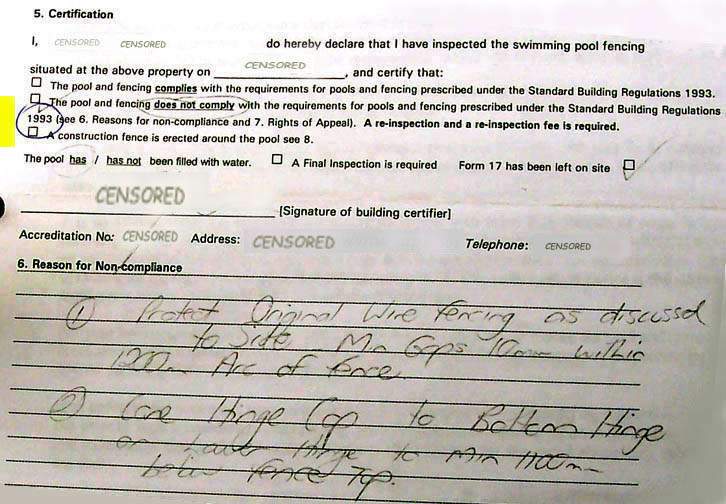 5. Certification
I, CENSORED CENSORED do hereby declare that I have inspected the swimming pool fencing
situated at the above property on CENSORED, and certify that:
☐ The pool and fencing complies with the requirements for pools and fencing prescribed under the Standard Building Regulations 1993.
☐ The pool and fencing does not comply with the requirements for pools and fencing prescribed under the Standard Building Regulations
1993 (see 6. Reasons for non-compliance and 7. Rights of Appeal). A re-inspection and a re-inspection fee is required.
☐ A construction fence is erected around the pool see 8.
The pool has / has not been filled with water. ☐ A Final Inspection is required Form 17 has been left on site ☐
CENSORED
[Signature of building certifier]
Accreditation No: CENSORED Address: CENSORED Telephone: CENSORED
6. Reason for Non-compliance
① Protect Original Wire fencing as discussed
to Side Gaps 10mm within
1200mm Arc of fence.
② Hinge Cap to Bottom Hinge
or Lower Hinge to Min 1100mm
below fence Top.